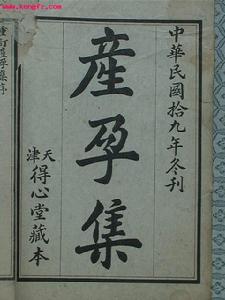 www.kongfz.com
中華民國拾九年冬刊
產孕集
天津得心堂藏本
重訂產孕集序